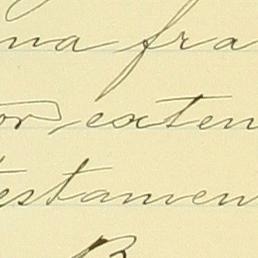 na fra
or exten
estamen
B